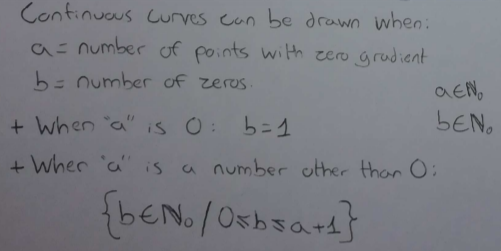 Continuous curves can be drawn when:
a = number of points with zero gradient
b = number of zeros.
a∈N₀
b∈N₀
+ When "a" is 0: b=1
+ When "a" is a number other than 0:
{b∈N₀ / 0≤b≤a+1}